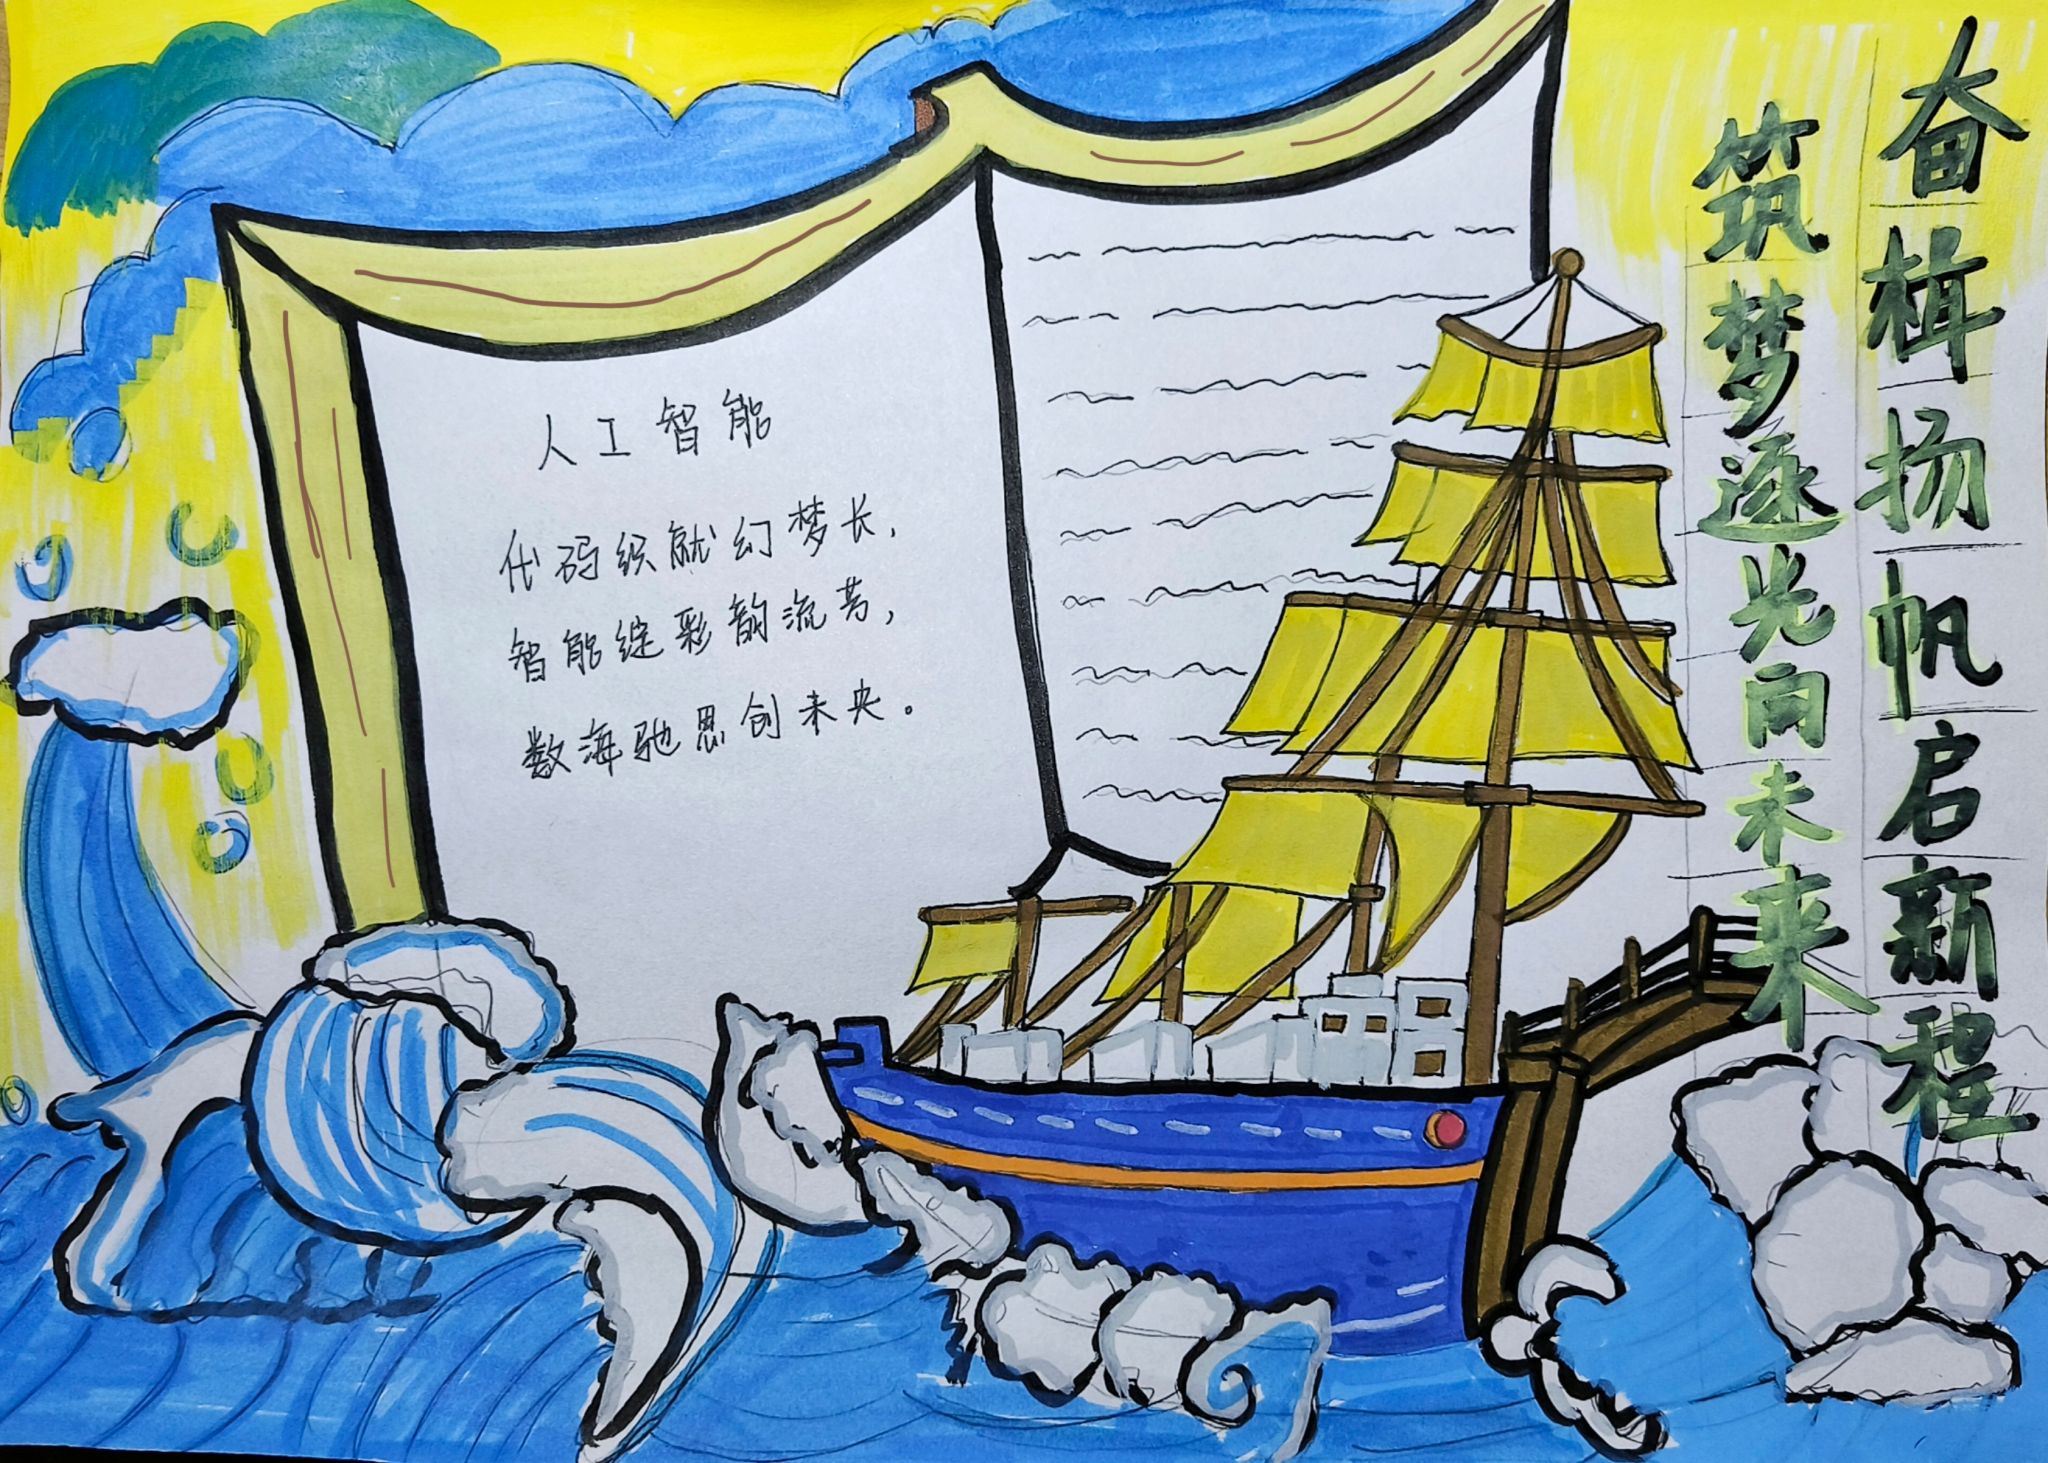 奋楫扬帆启新程
筑梦逐光向未来
人工智能
代码织就幻梦长，
智能绽彩韵流芳，
数海驰思创未央。